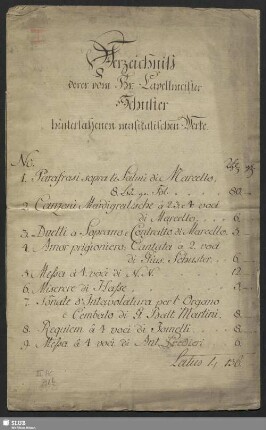 Verzeichniß
derer vom Hr. Capellmeister
Schuster
hinterlaßenen musikalischen Werke.
No.
1. Parafrasi sopra li Salmi di Marcello.
8. Fol. 80. —
2. Canzoni Madrigalesche à 2. 3. 4 voci
di Marcello. 6. —
3. Duetti a Soprano e Contralto di Marcello. 5 —
4. Amor prigioniero: Cantata a 2 voci
di Gius. Schuster. 6 —
5. Messa à 4 voci di N. N. 12
6. Miserere di Hasse.
7. Sonate d'Intavolatura per l'Organo
e Cembalo di G. Batt. Martini. 8. —
8. Requiem à 4 voci di Jomelli. 8. —
9. Messa à 4 voci di Ant. 6. —
Latus
SLUB